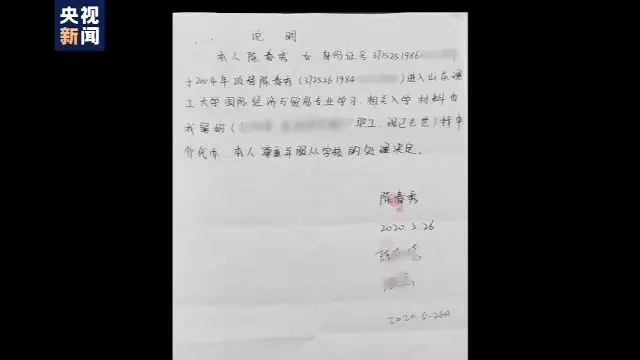 央视
新闻
说 明
本人陈春秀 女 身份证号 3715251986
于2004年顶替陈春秀(3725261984 )进入山东理
工大学国际经济与贸易专业学习,相关入学材料由
我舅妈( 职工,现已去世)找中
介代办,本人尊重并服从学校的处理决定。
陈春秀
2020.5.26
2020.5.26